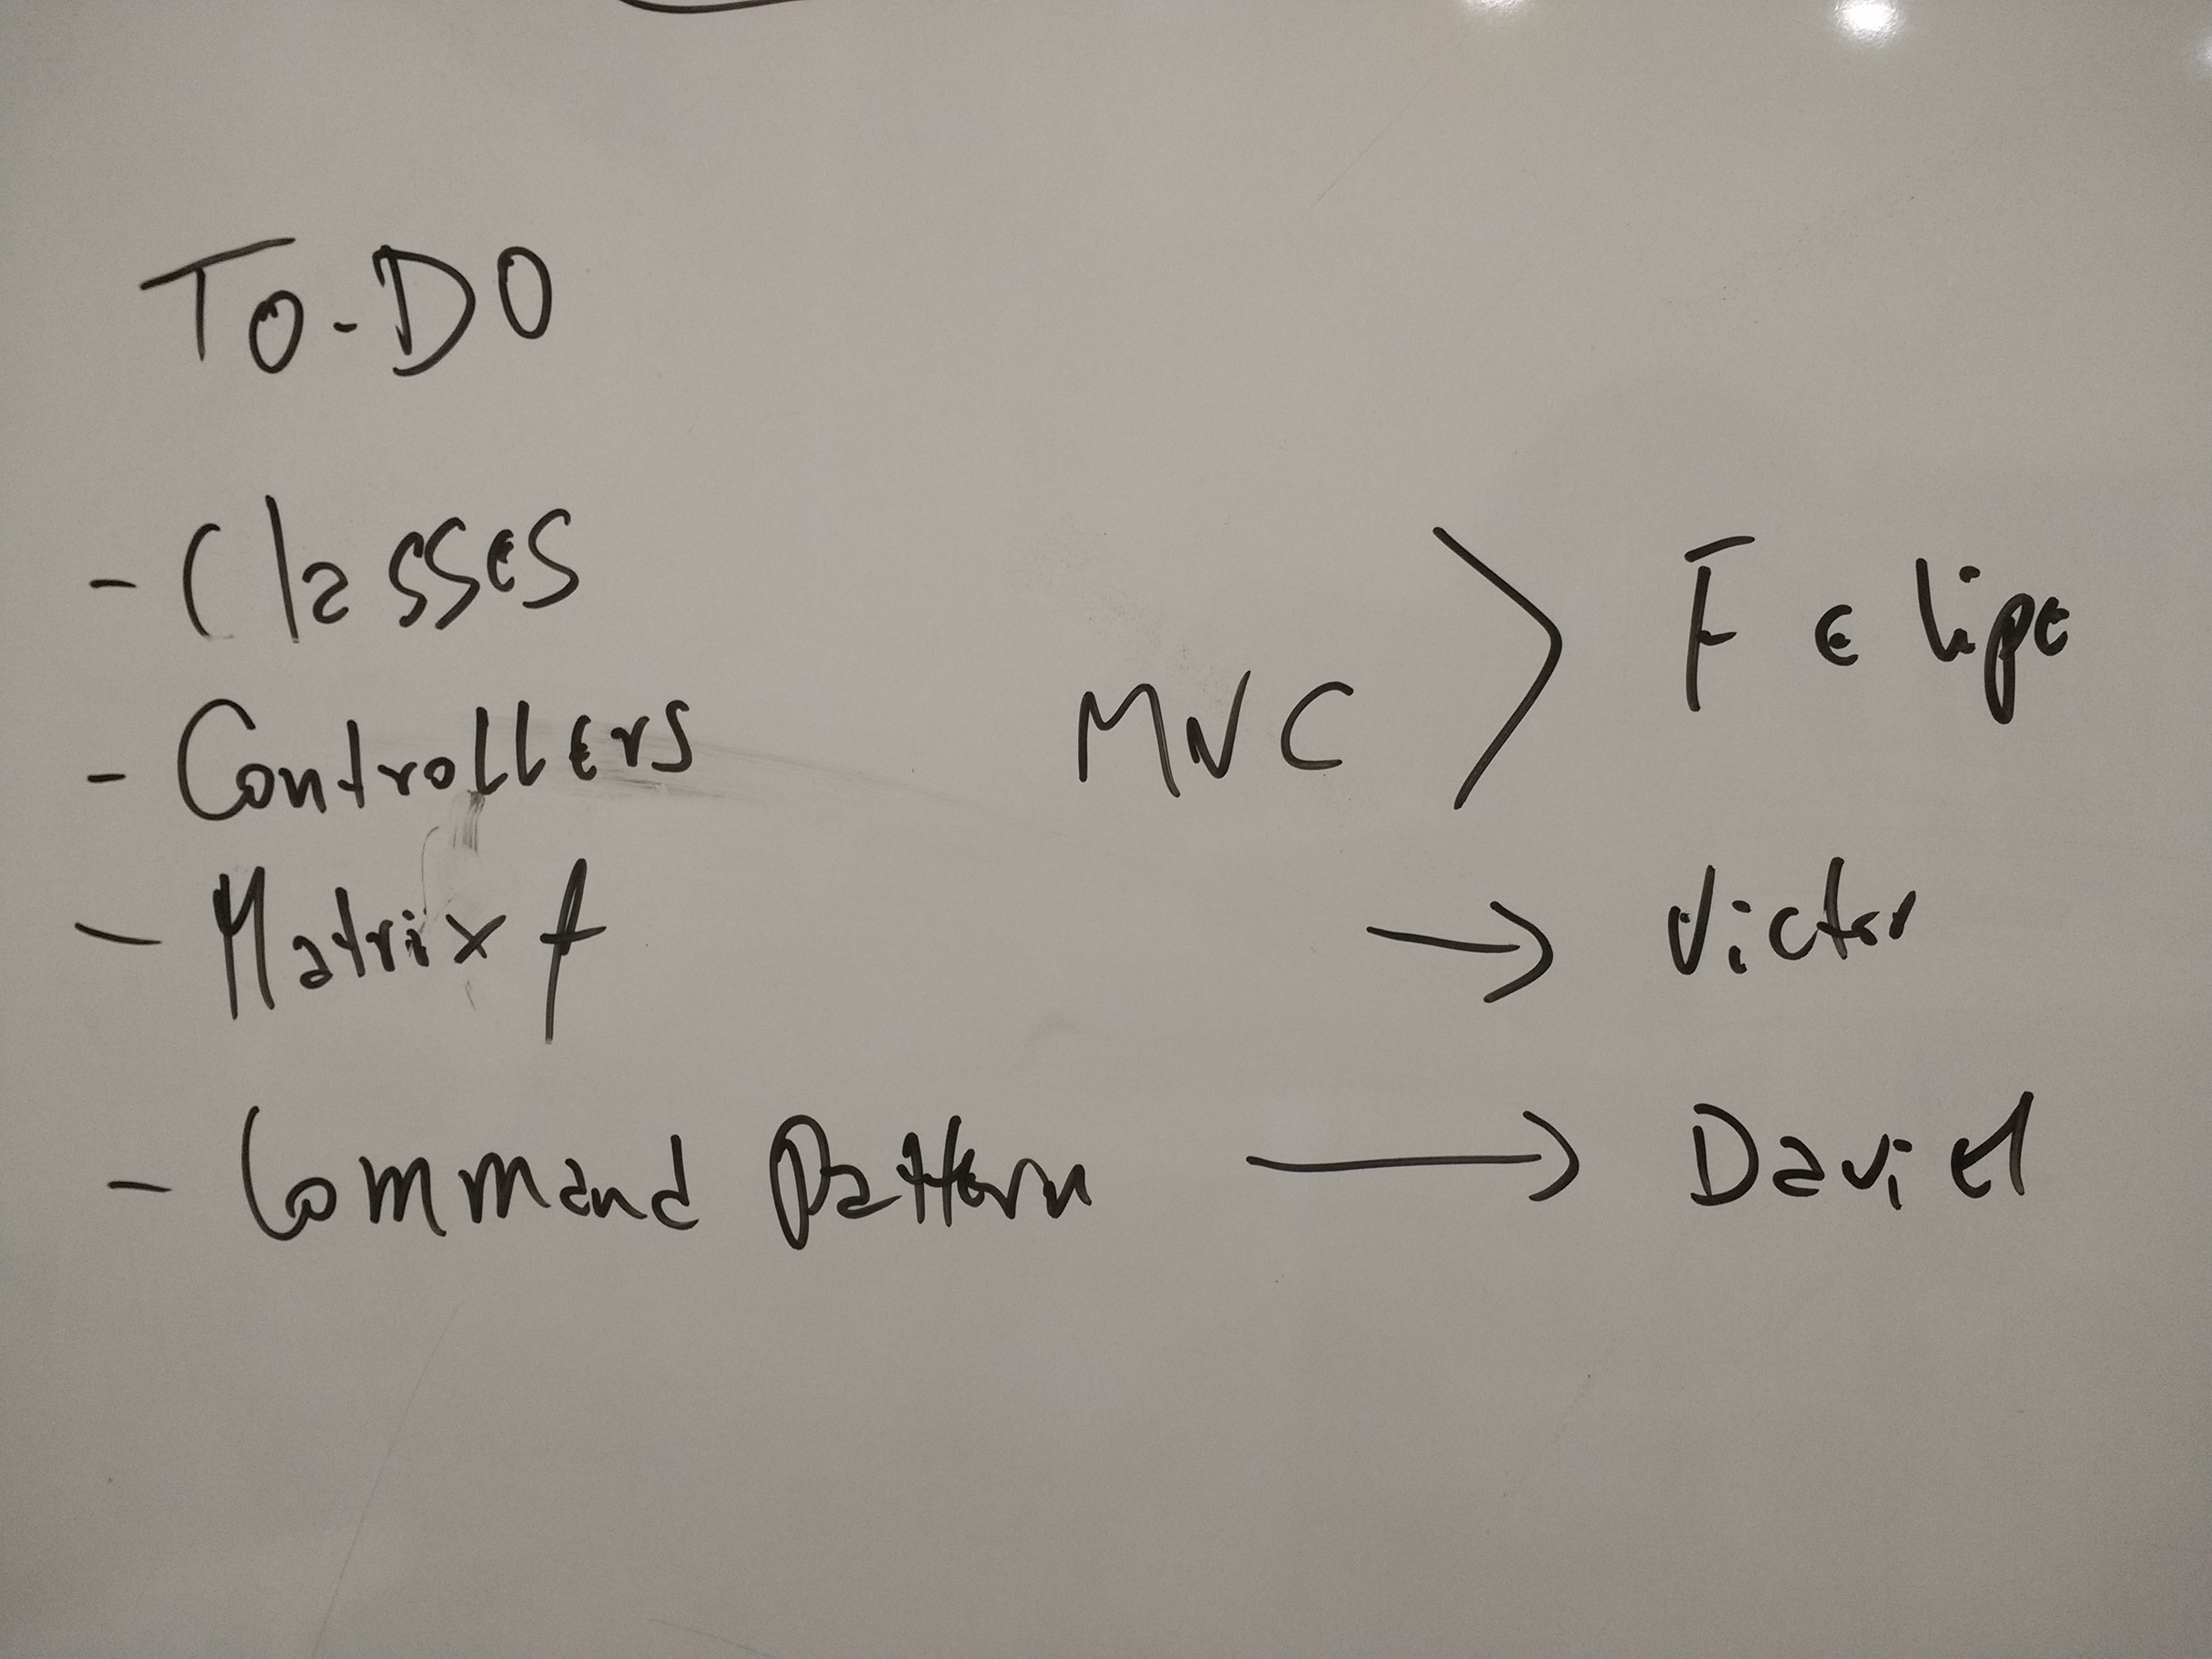 TO-DO
- Classes
- Controllers MVC > Felipe
- Matrix f → Victor
- Command Pattern → David